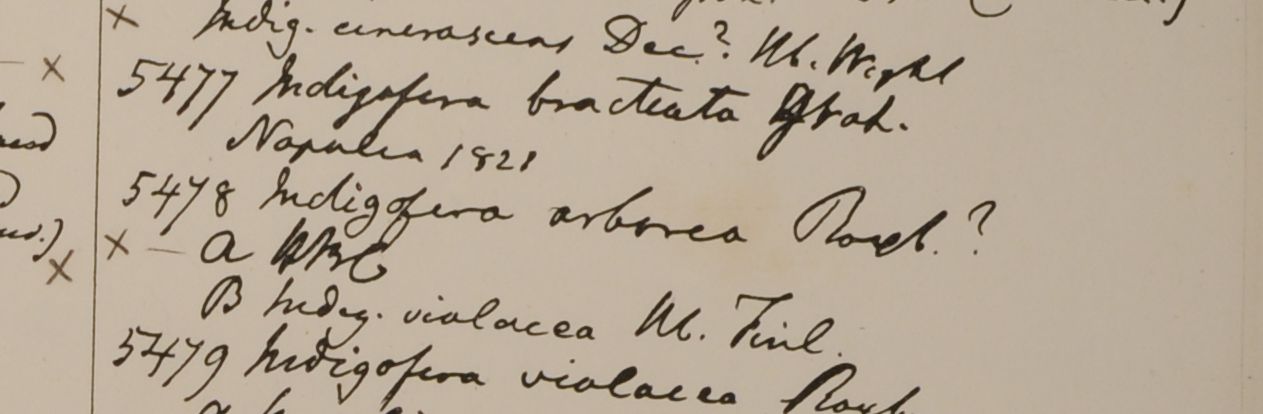 × Indig. cinerascens Dec.? Hb. Wight
5477 Indigofera bracteata Grah.
Napalia 1821
5478 Indigofera arborea Roxb.?
× — a HBC
B Indig. violacea Hb. Finl.
5479 Indigofera violacea Roxb